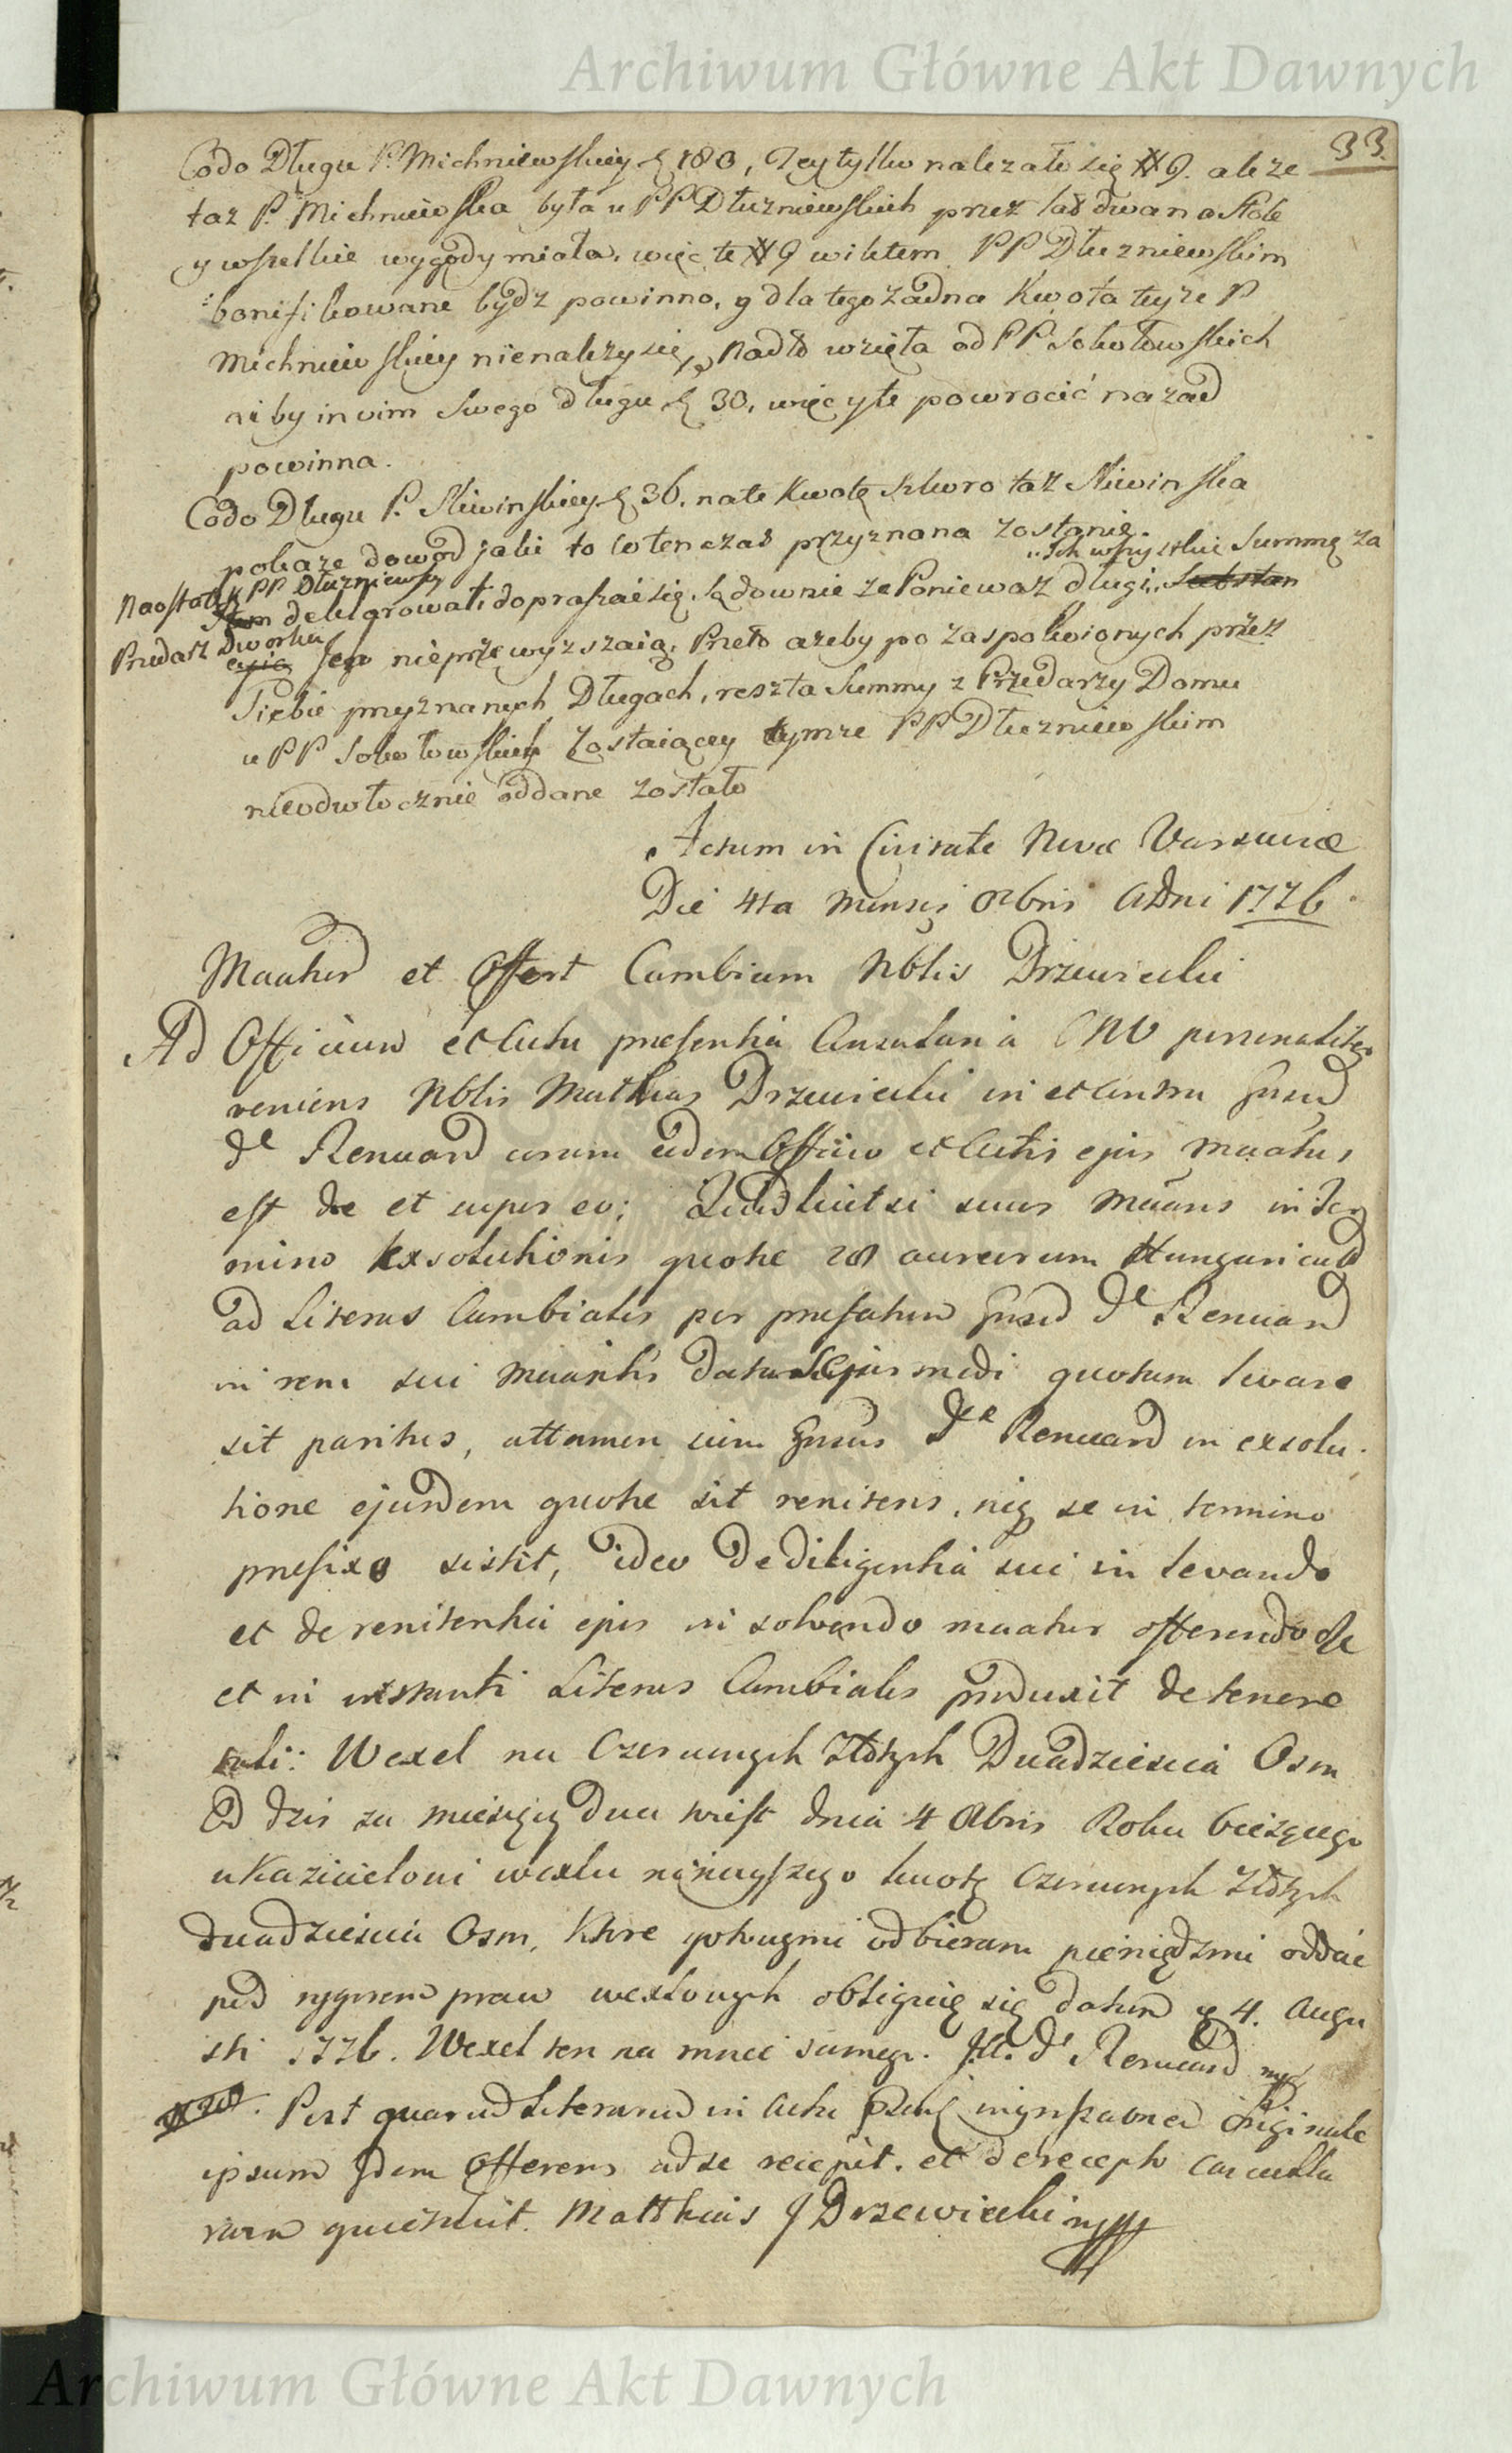 Archiwum Główne Akt Dawnych
33.
Codo Długu P. Michniewskiey 180, Jey tylko nalezało się # 9. ale ze
taz P. Michniewska była u PP Dłuzniewskich przez lat dwa na Stole
y wszelkie wygody miała, więc te # 9 wiktem PP Dłuzniewskim
bonifikowane bydz powinno, y dla tego zadna Kwota teyze P
Michniewskiey nienalezy się, Nadto wzięła od PP Sobotowskich
niby in vim Swego długu 30, więc y te powrocić nazad
powinna.
Codo Długu P. Sliwinskiey 36. na te Kwotę skoro taz Sliwinska
pokaze dowod jaki to wtenczas przyznana zostanie.
Naostatek PP Dłuzniewscy deklarowali dopraszaić się Sądownie ze Poniewasz długi Ich wszystkie Summę za
Przedasz Dworku Jego nieprzewyzszaią, Przeto azeby po zaspokoionych przez
Siebie przyznanych Długach, reszta Summy z Przedazy Domu
u PP Sobotowskich Zostaiącey tymze PP Dłuzniewskim
nieodwłocznie oddane zostało
Actum in Civitate Nova Varsavia
Die 4ta Mensis 8bris ADni 1776.
Maatur et Offert Cambium Nblis Drzewiecki
Ad Officium et Acta presentia Consularia CNV personaliter
veniens Nblis Mathias Drzewiecki in et contra Gnsum
de Renuard coram eodem Officio et Actis ejus maatus
est de et super eo; Quod licet si suus Maans in Ter
mino Exsolutionis quotae 28 aureorum Hungaricum
ad Literas Cambiales per prefatum Gnsum de Renuard
in rem sui Maantis datas ejusmodi quotam levare
sit paritus, attamen cum Gnsus de Renuard in exsolu
tione ejusdem quotae sit renitens, neq se in termino
prefixo sistit, ideo de diligentia sui in levando
et de renitentia ejus in solvendo maatur offerendo se
et in instanti Literas Cambiales produxit de tenore
tali: Wexel na Czerwonych Złotych Dwadziescia Osm
Od dzis za miesięcy dwa to iest dnia 4 8bris Roku biezącego
ukazicielowi wexlu ninieyszego kwotę Czerwonych Złotych
dwadziescia Osm, Ktore gotowymi odbieram pieniędzmi oddać
pod rygorem praw wexlowych obliguię się datum 4. Augu
sti 1776. Wexel ten na mnie samego. de Renuard mp
# 28. Post quarum Literarum in Acta originale
ipsum Idem Offerens ad se recepit. et de recepto Cancella
riam quietavit. Matthias J Drzewiecki mpp
Archiwum Główne Akt Dawnych